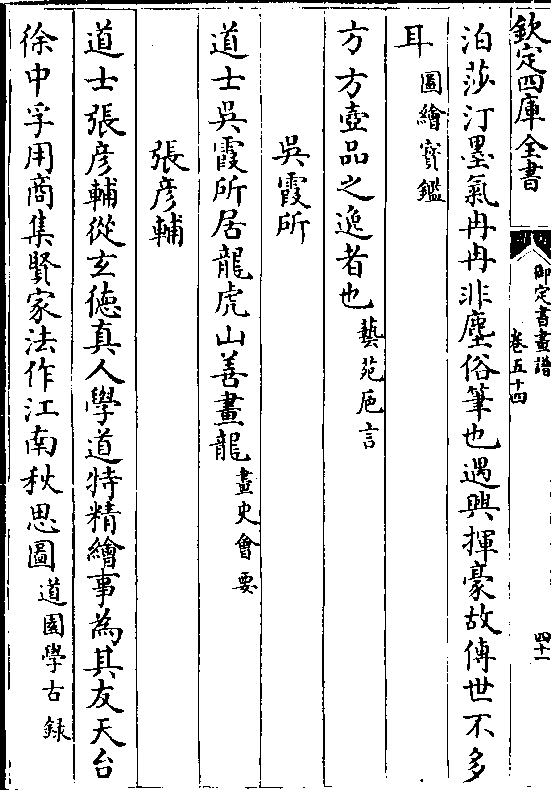 欽定四庫全書
御定書畫譜
卷五十四
四十一
泊莎汀墨氣冉冉非塵俗筆也遇興揮豪故傳世不多
耳圖繪寶鑑
方方壺品之逸者也藝苑巵言
吳霞所
道士吳霞所居龍虎山善畫龍畫史會要
張彥輔
道士張彥輔從玄德真人學道特精繪事為其友天台
徐中孚用商集賢家法作江南秋思圖道園學古録